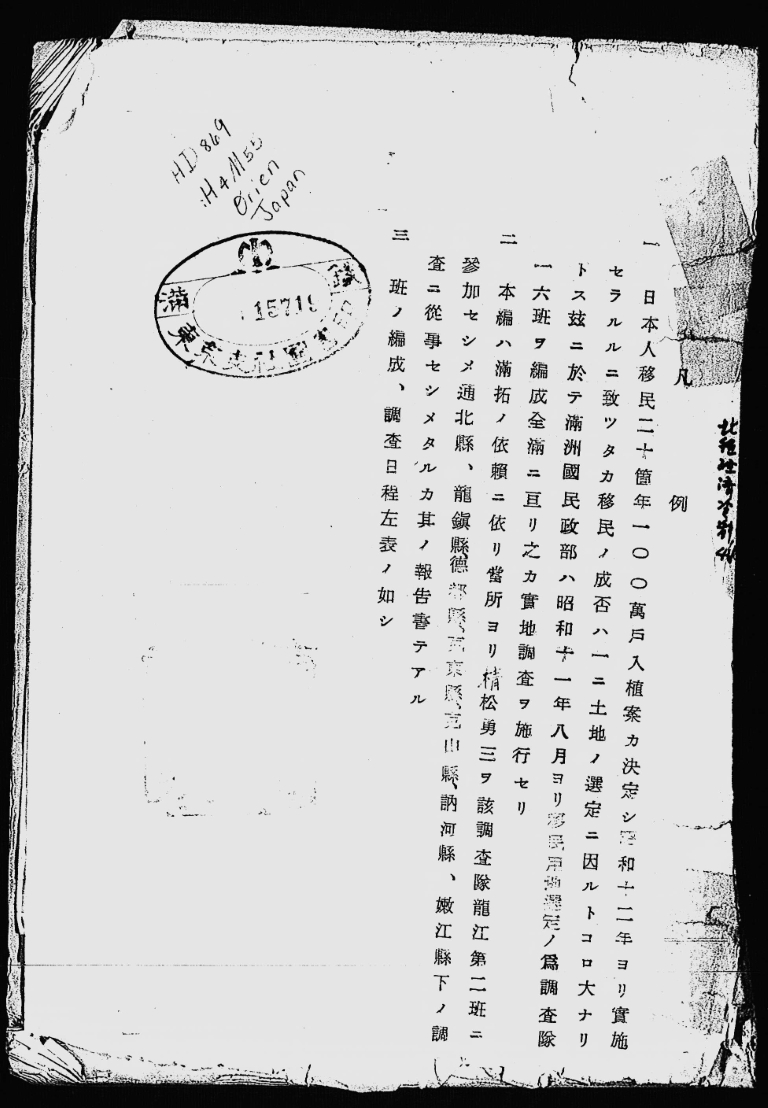 凡例
一 日本人移民二十箇年一〇〇萬戸入植案カ決定シ昭和十二年ヨリ實施
セラルルニ致ツタカ移民ノ成否ハ一ニ土地ノ選定ニ因ルトコロ大ナリ
トス玆ニ於テ滿洲國民政部ハ昭和十一年八月ヨリ移民用地選定ノ爲調査隊
一六班ヲ編成全滿ニ亘リ之カ實地調査ヲ施行セリ
二 本編ハ滿拓ノ依頼ニ依リ當所ヨリ楠松勇三ヲ該調査隊龍江第二班ニ
參加セシメ通北縣、龍鎭縣、德都縣、克東縣、克山縣、訥河縣、嫩江縣下ノ調
査ニ從事セシメタルカ其ノ報告書テアル
三 班ノ編成、調査日程左表ノ如シ
HD 869
.H4M55
Orien
Japan
15719